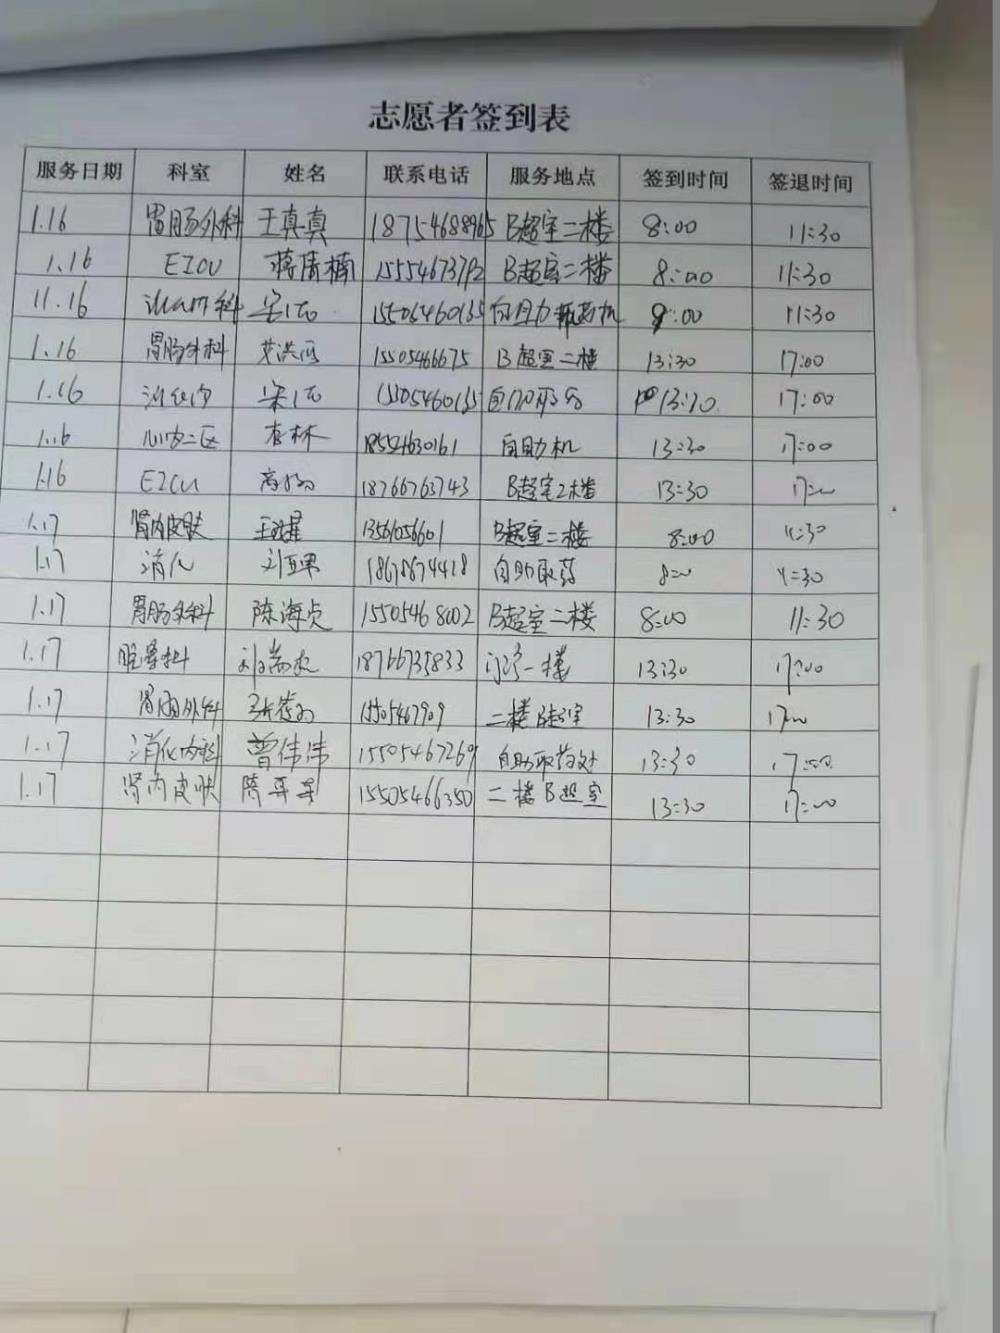 志愿者签到表
服务日期 科室 姓名 联系电话 服务地点 签到时间 签退时间
1.16 胃肠外科 王真真 18754688965 B超室二楼 8:00 11:30
1.16 EICU 蒋倩楠 15554673792 B超室二楼 8:00 11:30
11.16 :00 11:30
1.16 胃肠外科 15505466675 B超室二楼 13:30 17:00
1.16 17:00
1.16 心内二区 李林 18554630161 自助机 13:30 17:00
1.16 EICU 18766763743 B超室2楼 13:30 17:00
1.17 肾内皮肤 13561056601 B超室二楼 8:00 11:30
1.17 消化 18678674418 自助取药 8:00 11:30
1.17 胃肠外科 陈海贞 15505468002 B超室二楼 8:00 11:30
1.17 18766735833 一楼 13:30 17:00
1.17 胃肠外科 15505467909 二楼B超室 13:30 17:00
1.17 消化内科 曾伟伟 15505467269 自助取药处 13:30 17:00
1.17 肾内皮肤 15505466350 二楼B超室 13:30 17:00